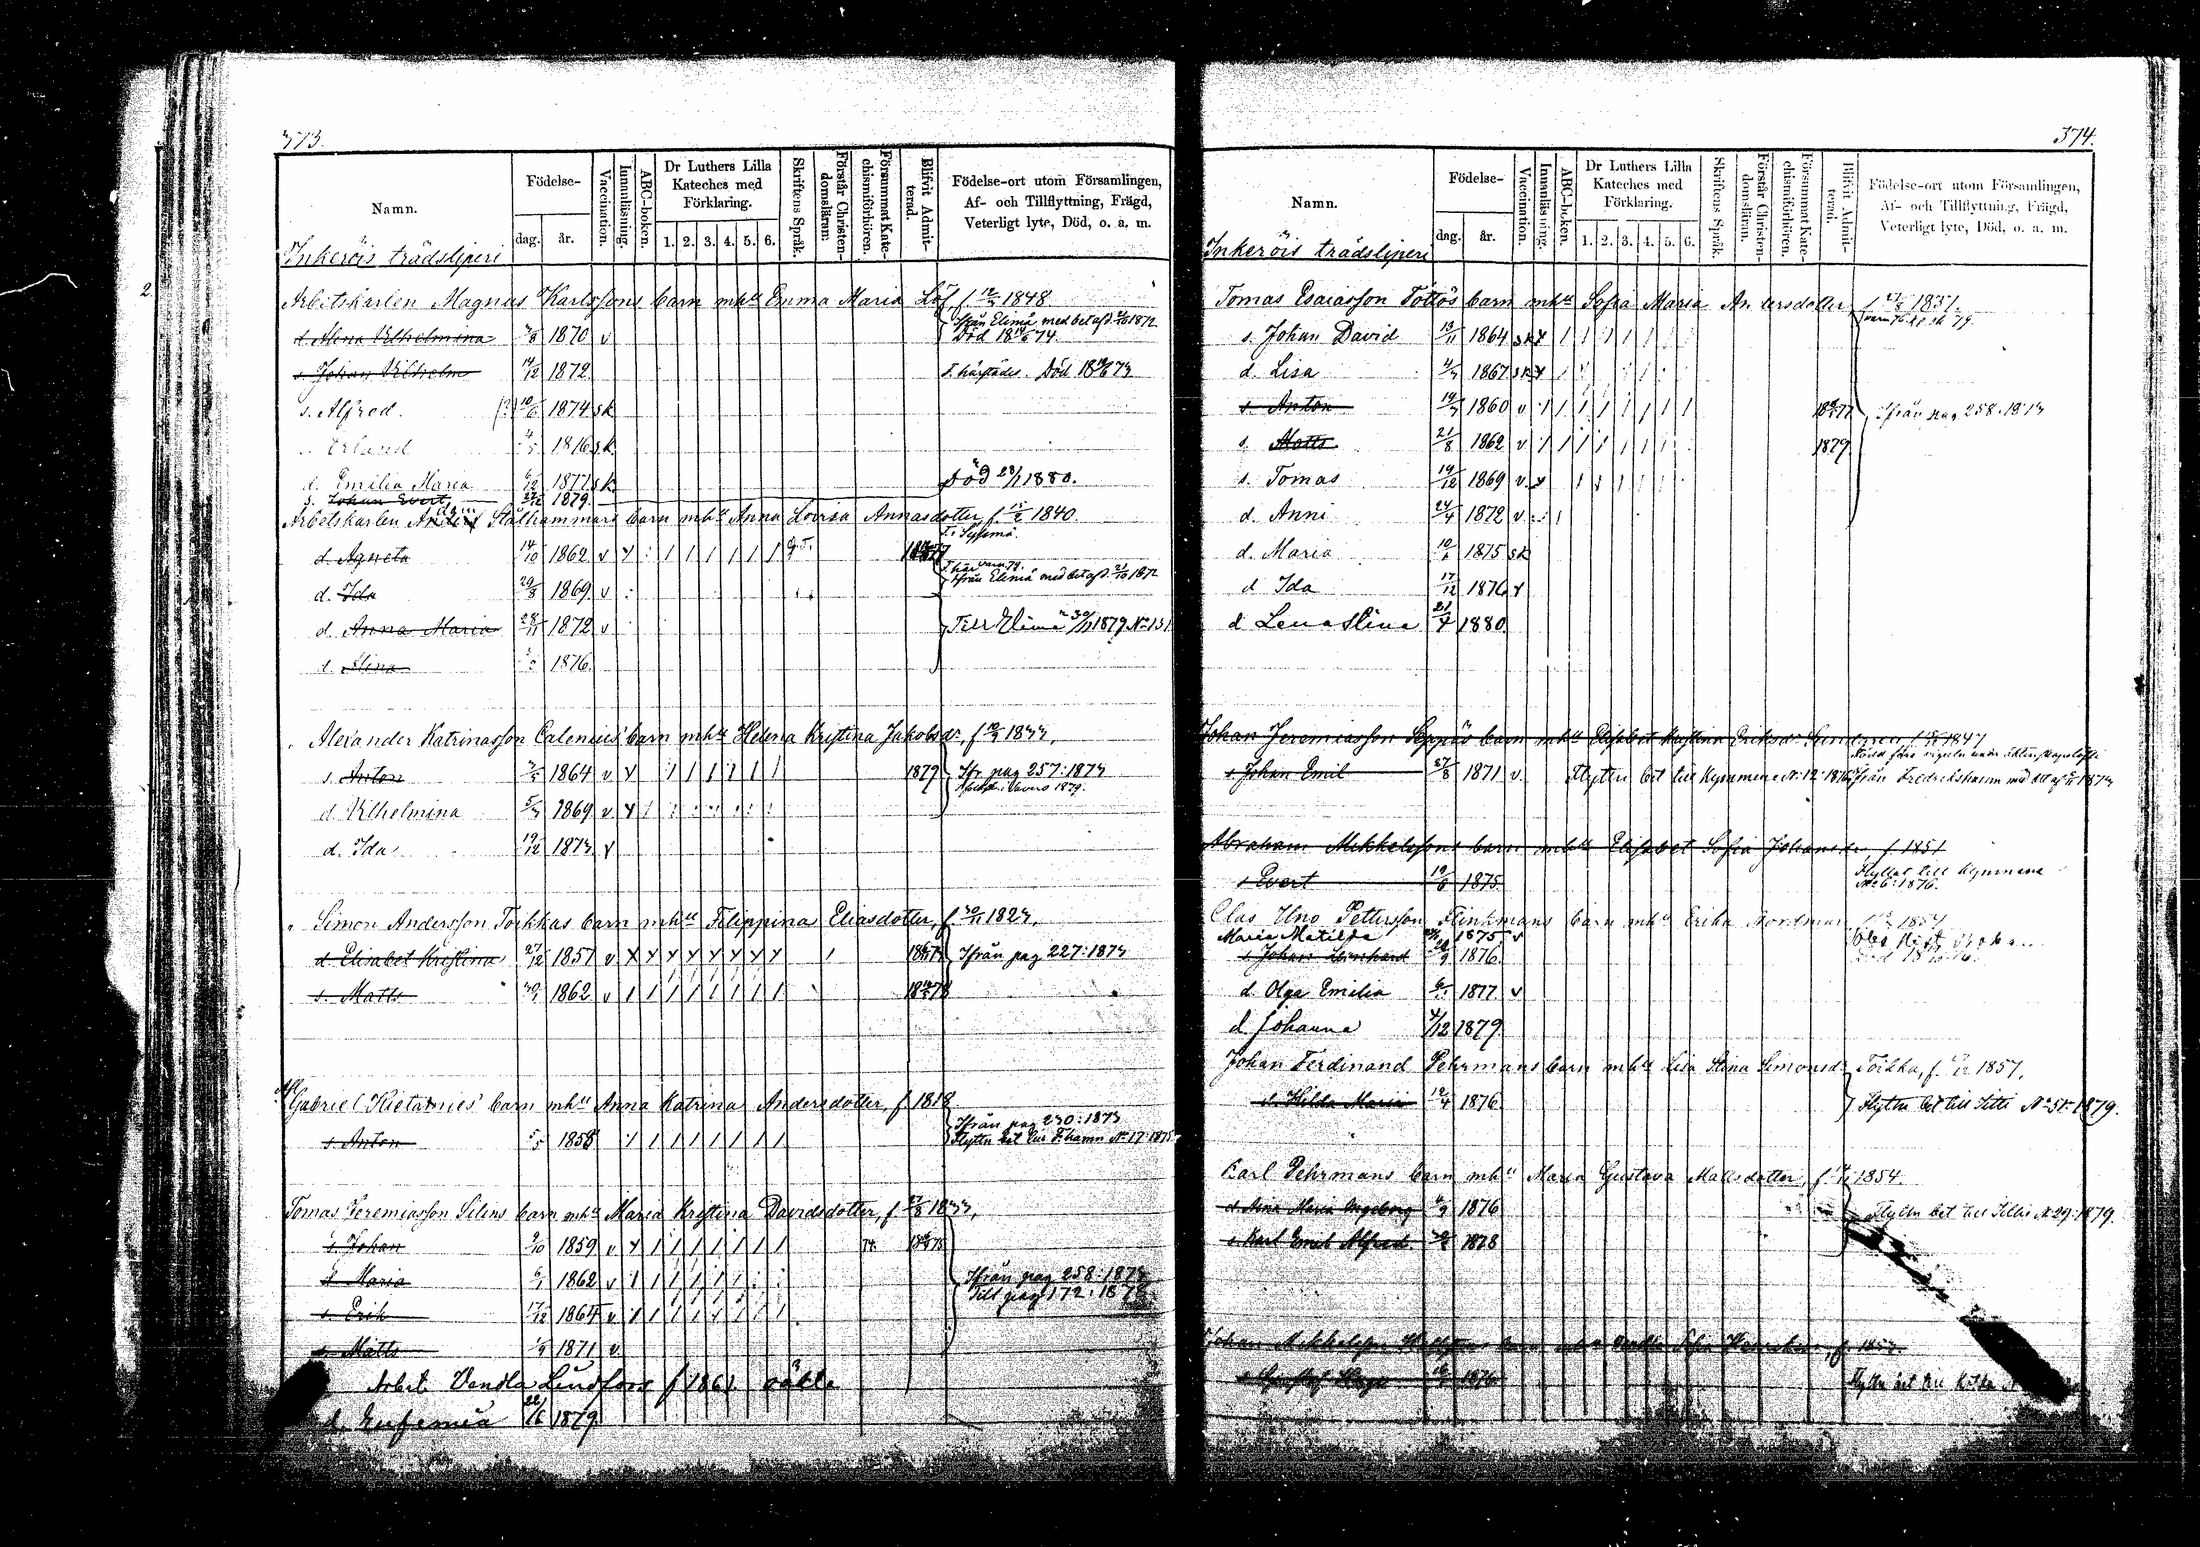 373.
Namn.
Födelse-
dag.
år.
Vaccination.
Innanläsning.
ABC-boken.
Dr Luthers Lilla
Kateches med
Förklaring.
1. 2. 3. 4. 5. 6.
Skriftens Språk.
Förstår Christen-
domsläran:
Försummat Kate-
chismiförhören.
Blifvit Admit-
terad.
Födelse-ort utom Församlingen,
Af- och Tillflyttning, Frägd,
Veterligt lyte, Död, o. a. m.
Inkerois trädsliperi
Arbetskarlen Magnus Karlssons barn mhu Emma Maria Löf f. 1848
d Alma Vilhelmina 1870 v
Ifrån Elimä med bet af 1872
Död 1874.
s. Johan Vilhelm 14/12 1872. F. härstädes. Död 1873
s. Alfred 10/6 1874 sk
Erland 1876 sk
d. Emilia Maria 6/12 1877 sk
s. Johan Evert 1879. Död 28/1 1880.
Arbetskarlen Stålhammars barn mhu Anna Lovisa Annasdotter f. 1840.
d. Agneta 14/10 1862 v
F. i Sysmä.
d. Ida 29/8 1869 v
Ifrån Elimä med bet af 21/10 1872
d. Anna Maria 28/11 1872 v Till Elimä 1879 No 131
d. Alina 1876.
Alexander Katrinasson Calenius barn mhu Helena Kristina Jakobsdr, f. 1833,
s. Anton 1864 v 1879 Ifr. pag 257:1873
d. Vilhelmina 1869 v
d. Ida 19/12 1873
Simon Andersson Toikkas barn mhu Filippina Eliasdotter, f. 1823,
d Elisabet Kristina 27/12 1857 v Ifrån pag 227:1873
s. Matts 1862 v 1878
Gabriel Kietäniés barn mhu Anna Katrina Andersdotter, f 1818
Ifrån pag 230:1873
s Anton 5/5 1855 Flyttn bet till F:hamn No 17:1875
Tomas Jeremiasson Silens barn mhu Maria Kristina Davidsdotter, f. 1833,
s. Johan 9/10 1859 v 74.
d Maria 6/1 1862 v Ifrån pag 258:1873
Till pag 172:
s. Erik 1864 v
s. Matts 1871 v.
Arbet. Vendla Lindfors f 1861 oäkta
d. Eufemia 22/6 1879
374.
Namn.
Födelse-
dag.
år.
Vaccination.
Innanläsning.
ABC-boken.
Dr Luthers Lilla
Kateches med
Förklaring.
1. 2. 3. 4. 5. 6.
Skriftens Språk.
Förstår Christen-
domsläran.
Försummat Kate-
chismiförhören.
Blifvit Admit-
terad.
Födelse-ort utom Församlingen,
Af- och Tillflyttning, Frägd,
Veterligt lyte, Död, o. a. m.
Inkeröis trädsliperi
Tomas Esaiasson Töttös barn mhu Sofia Maria Andersdotter, f. 1837.
s. Johan David 13/11 1864 sk
d. Lisa 1867 sk
s Anton 1860 v 1877 Ifrån pag. 258:1873
s. Matts 21/8 1862 v 1879
s. Tomas 19/12 1869 v.
d. Anni 24/4 1872 v
d. Maria 1875 sk
d Ida 17/12 1876
d Lena Stina 21/4 1880.
Johan Jeremiasson Seppäs barn mhu Elisabet Kristina Eriksdr f. 1847
s Johan Emil 27/8 1871 v. Flyttn bet till Kymmene No 12:1876 ifrån Fredrikshamn med bet af 1873
Abraham Mikkelssons barn mhu Elisabet Sofia Johansdr f. 1851
s Evert 19/6 1875. Flyttat till Kymmene
No 6:1876.
Clas Uno Pettersson Flinkmans barn mhu Erika Nordman 1854
Maria Matilda 1875 v
s Johan Leonhard 1876.
d. Olga Emilia 1877 v
d Johanna 4/12 1879.
Johan Ferdinand Pehrmans barn mhu Lisa Stina Simonsdr Toikka, f. 1857,
d. Hilda Maria 1876. Flyttn bet till Sitti No 51:1879.
Karl Pehrmans barn mhu Maria Gustava Mattsdotter f. 1854
d. Aina Maria Ingeborg 1876 Flyttn bet till Sitti No 29:1879.
s. Karl Emil Alfred 1878
Johan Mikkelsson
1876 Flyttn bet till Kotka